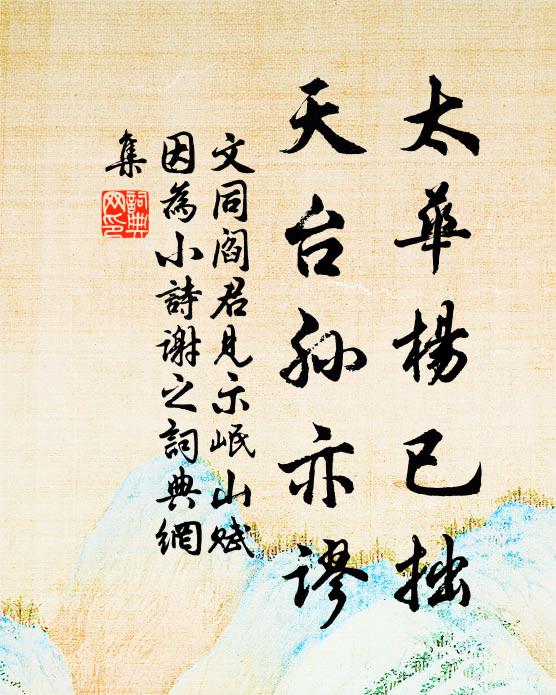 太華楊已拙
天台孙亦謬
文同閻君見示岷山賦
因為小詩謝之詞典網
集
詞典
网印